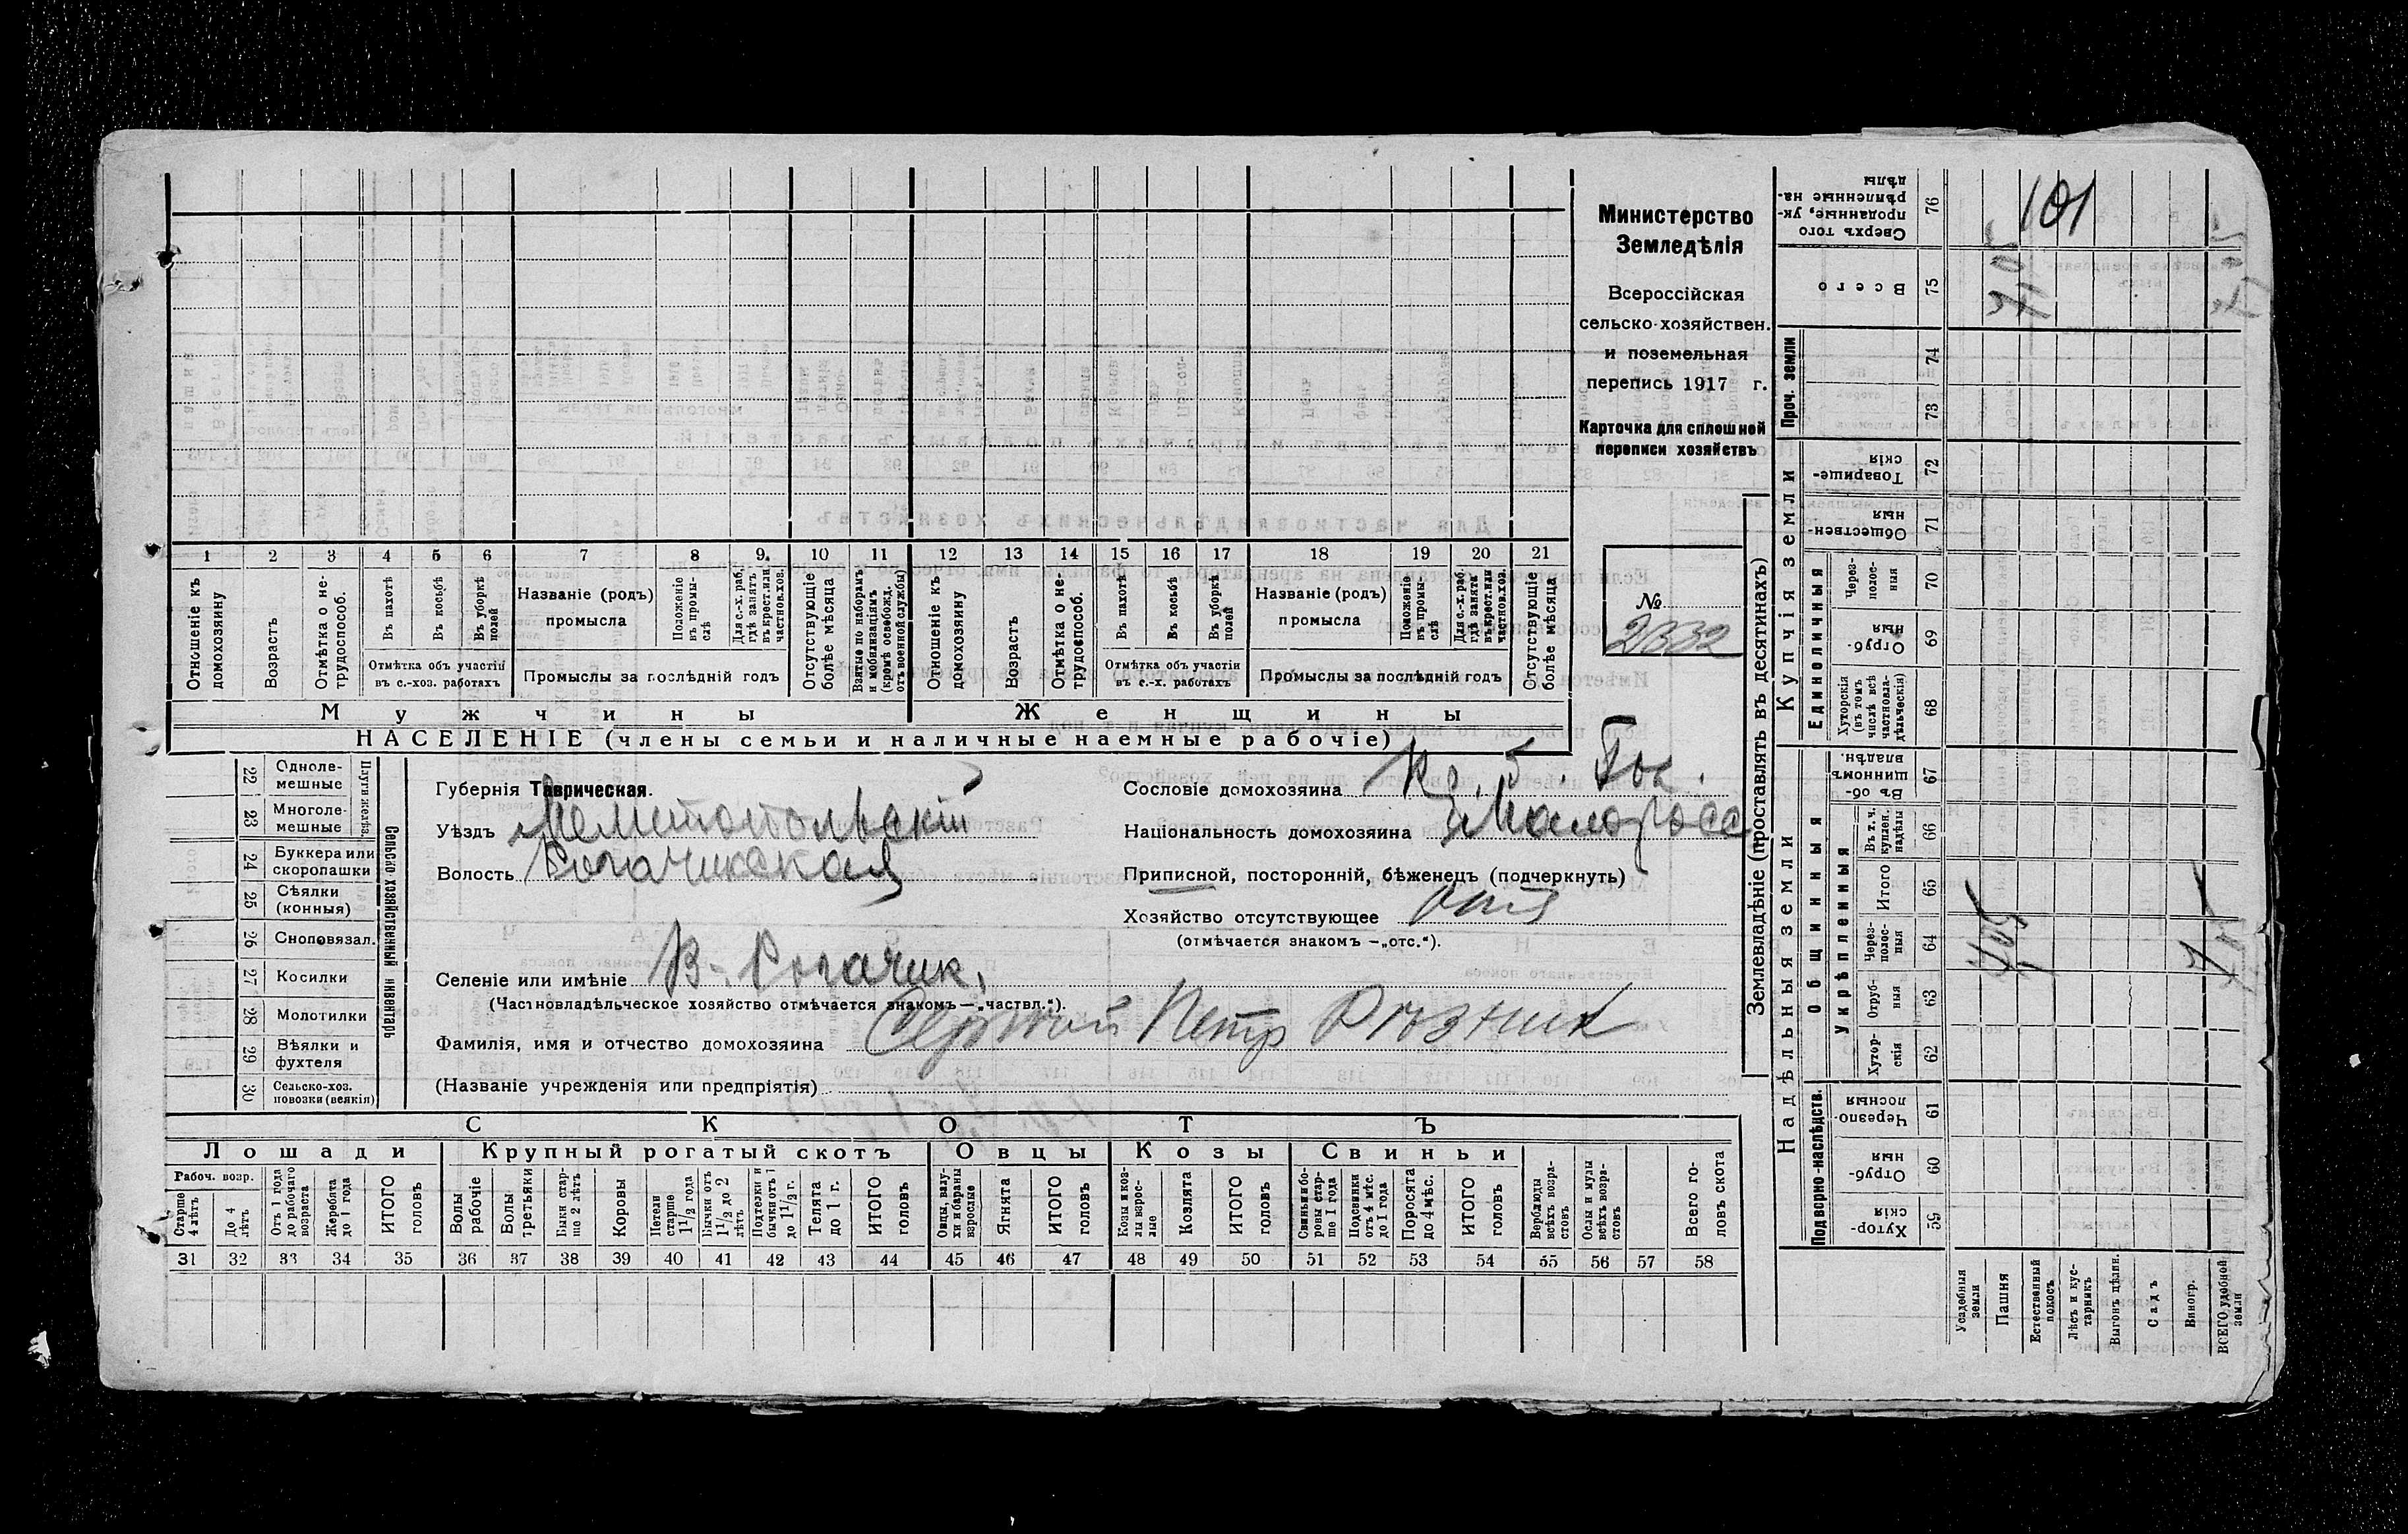 Министерство
Земледѣлія
Всероссійская
сельско-хозяйствен.
и поземельная
перепись 1917 г.
Карточка для сплошной
переписи хозяйствъ
№
2332
1 2 3 4 5 6 7 8 9 10 11 12 13 14 15 16 17 18 19 20 21
Отношеніе къ домохозяину
Возрастъ
Отмѣтка о не-трудоспособ.
Въ пахотѣ
Въ косьбѣ
Въ уборкѣ полей
Отмѣтка объ участіи въ с.-хоз. работахъ
Названіе (родъ) промысла
Положеніе въ промы-слѣ
Для с.-х. раб. гдѣ занятъ въ крест. или частнов. хоз.
Промыслы за послѣдній годъ
Отсутствующіе болѣе мѣсяца
Взятые по наборамъ и мобилизаціямъ (кромѣ освобожд. отъ военной службы)
Отношеніе къ домохозяину
Возрастъ
Отмѣтка о не-трудоспособ.
Въ пахотѣ
Въ косьбѣ
Въ уборкѣ полей
Отмѣтка объ участіи въ с.-х. работахъ
Названіе (родъ) промысла
Положеніе въ промы-слѣ
Для с.-х. раб. гдѣ занята въ крест. или частнов. хоз.
Промыслы за послѣдній годъ
Отсутствующіе болѣе мѣсяца
Мужчины
Женщины
НАСЕЛЕНІЕ (члены семьи и наличные наемные рабочіе)
22 Одноле-мешные
23 Многоле-мешные
Плуги желѣз.
24 Буккера или скоропашки
25 Сѣялки (конныя)
26 Сноповязал.
27 Косилки
28 Молотилки
29 Вѣялки и фухтеля
30 Сельско-хоз. повозки (всякія)
Сельско-хозяйственный инвентарь
Губернія Таврическая.
Уѣздъ Мелитопольскій
Волость Рогачикская
Селеніе или имѣніе В. Рогачик.
(Частновладѣльческое хозяйство отмѣчается знакомъ — „частвл.“).
Фамилія, имя и отчество домохозяина Петр
(Названіе учрежденія или предпріятія)
Сословіе домохозяина
Національность домохозяина Малоросс
Приписной, посторонній, бѣженецъ (подчеркнуть)
Хозяйство отсутствующее
(отмѣчается знакомъ — „отс.“).
СКОТЪ
Лошади
Крупный рогатый скотъ
Овцы
Козы
Свиньи
Рабоч. возр.
Старше 4 лѣтъ
До 4 лѣтъ
Отъ 1 года до рабочаго возраста
Жеребята до 1 года
ИТОГО головъ
Волы рабочіе
Волы третьяки
Быки стар-ше 2 лѣтъ
Коровы
Нетели старше 1 1/2 года
Бычки отъ 1 1/2 до 2 лѣтъ
Подтелки и бычки отъ 1 до 1 1/2 г.
Телята до 1 г.
ИТОГО головъ
Овцы, валу-хи и бараны взрослые
Ягнята
ИТОГО головъ
Козы и коз-лы взрос-лые
Козлята
ИТОГО головъ
Свиньи и бо-ровы стар-ше 1 года
Подсвинки отъ 4 мѣс. до 1 года
Поросята до 4 мѣс.
ИТОГО головъ
Верблюды всѣхъ возра-стовъ
Ослы и мулы всѣхъ возра-стовъ
Всего го-ловъ скота
31 32 33 34 35 36 37 38 39 40 41 42 43 44 45 46 47 48 49 50 51 52 53 54 55 56 57 58
Землевладѣніе (проставлять въ десятинахъ)
Надѣльныя земли
Купчія земли
Проч. земли
Подворно-наслѣдств.
Общинныя
Укрѣпленныя
Единоличныя
Сверхъ того проданные, ук-рѣпленные на-дѣлы 76
101
Всего 75
74
73
Товарище-скія 72
Обществен-ныя 71
Через-полос-ныя 70
Отруб-ныя 69
Хуторскія (въ томъ числѣ всѣ частновла-дѣльческія) 68
Въ об-щинномъ владѣн. 67
Въ т. ч. куплен. надѣлы 66
Итого 65
Через-полос-ныя 64
Отруб-ныя 63
Хутор-скія 62
Черезпо-лосныя 61
Отруб-ныя 60
Хутор-скія 59
Усадебныя земли
Пашня
Естественный покосъ
Лѣсъ и кус-тарникъ
Выгонъ цѣлин.
Садъ
Виногр.
ВСЕГО удобной земли